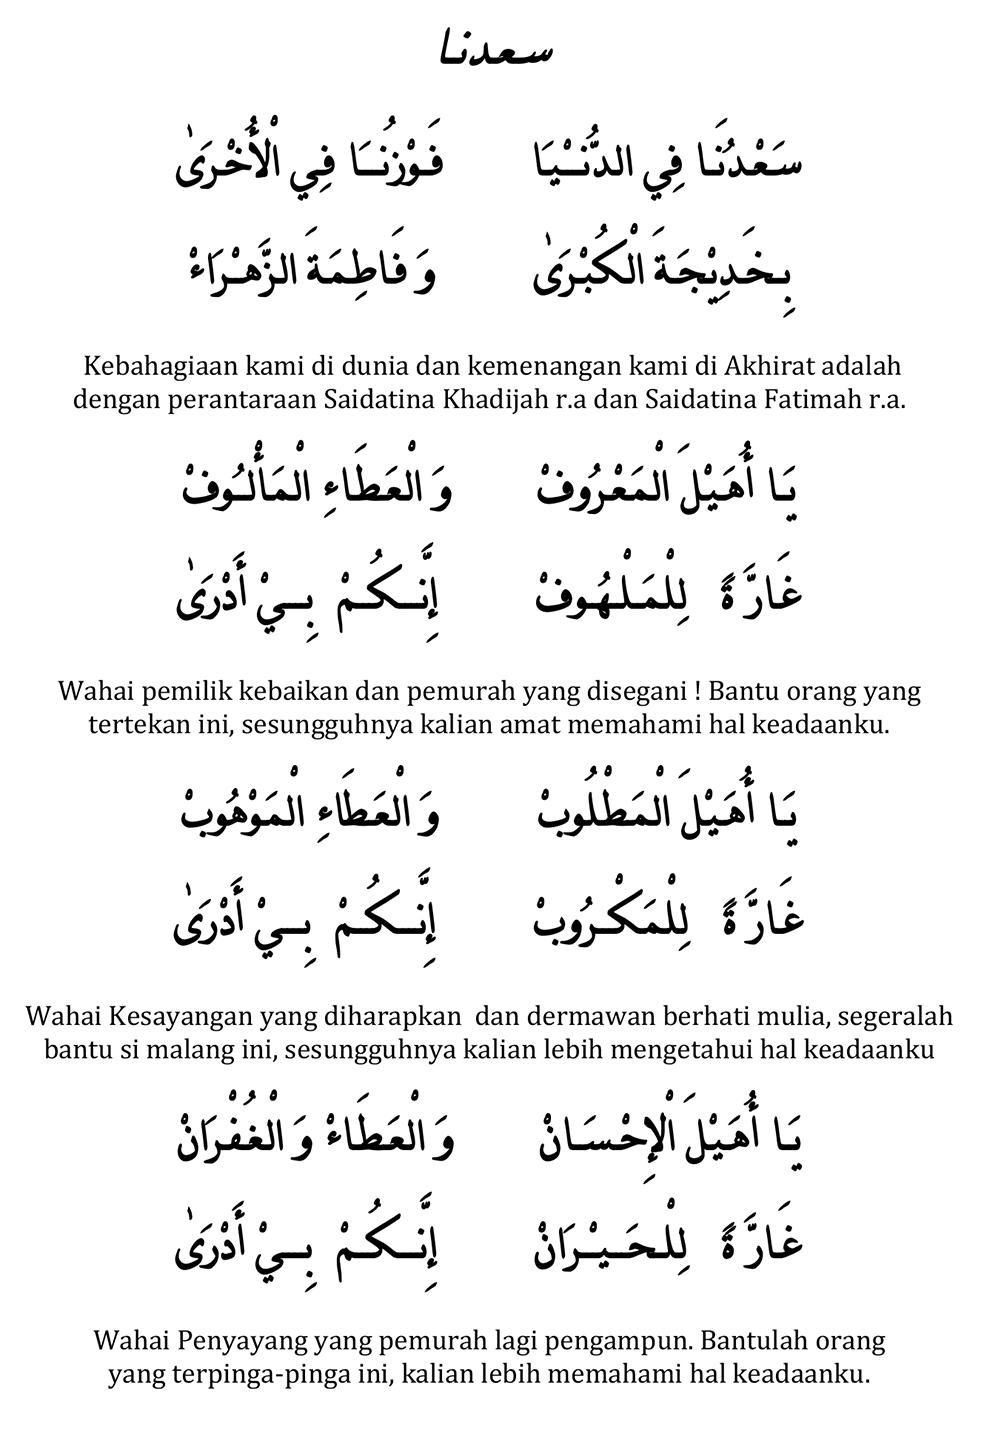 سعدنا
سَعْدُنَا فِي الدُّنْيَا فَوْزُنَا فِي الْأُخْرَىٰ
بِخَدِيْجَةَ الْكُبْرَىٰ وَفَاطِمَةَ الزَّهْرَاءْ
Kebahagiaan kami di dunia dan kemenangan kami di Akhirat adalah
dengan perantaraan Saidatina Khadijah r.a dan Saidatina Fatimah r.a.
يَا أُهَيْلَ الْمَعْرُوفْ وَالْعَطَاءِ الْمَأْلُوفْ
غَارَّةً لِلْمَلْهُوفْ إِنَّكُمْ بِيْ أَدْرَىٰ
Wahai pemilik kebaikan dan pemurah yang disegani ! Bantu orang yang
tertekan ini, sesungguhnya kalian amat memahami hal keadaanku.
يَا أُهَيْلَ الْمَطْلُوبْ وَالْعَطَاءِ الْمَوْهُوبْ
غَارَّةً لِلْمَكْرُوبْ إِنَّكُمْ بِيْ أَدْرَىٰ
Wahai Kesayangan yang diharapkan dan dermawan berhati mulia, segeralah
bantu si malang ini, sesungguhnya kalian lebih mengetahui hal keadaanku
يَا أُهَيْلَ الْإِحْسَانْ وَالْعَطَاءْ وَالْغُفْرَانْ
غَارَّةً لِلْحَيْرَانْ إِنَّكُمْ بِيْ أَدْرَىٰ
Wahai Penyayang yang pemurah lagi pengampun. Bantulah orang
yang terpinga-pinga ini, kalian lebih memahami hal keadaanku.